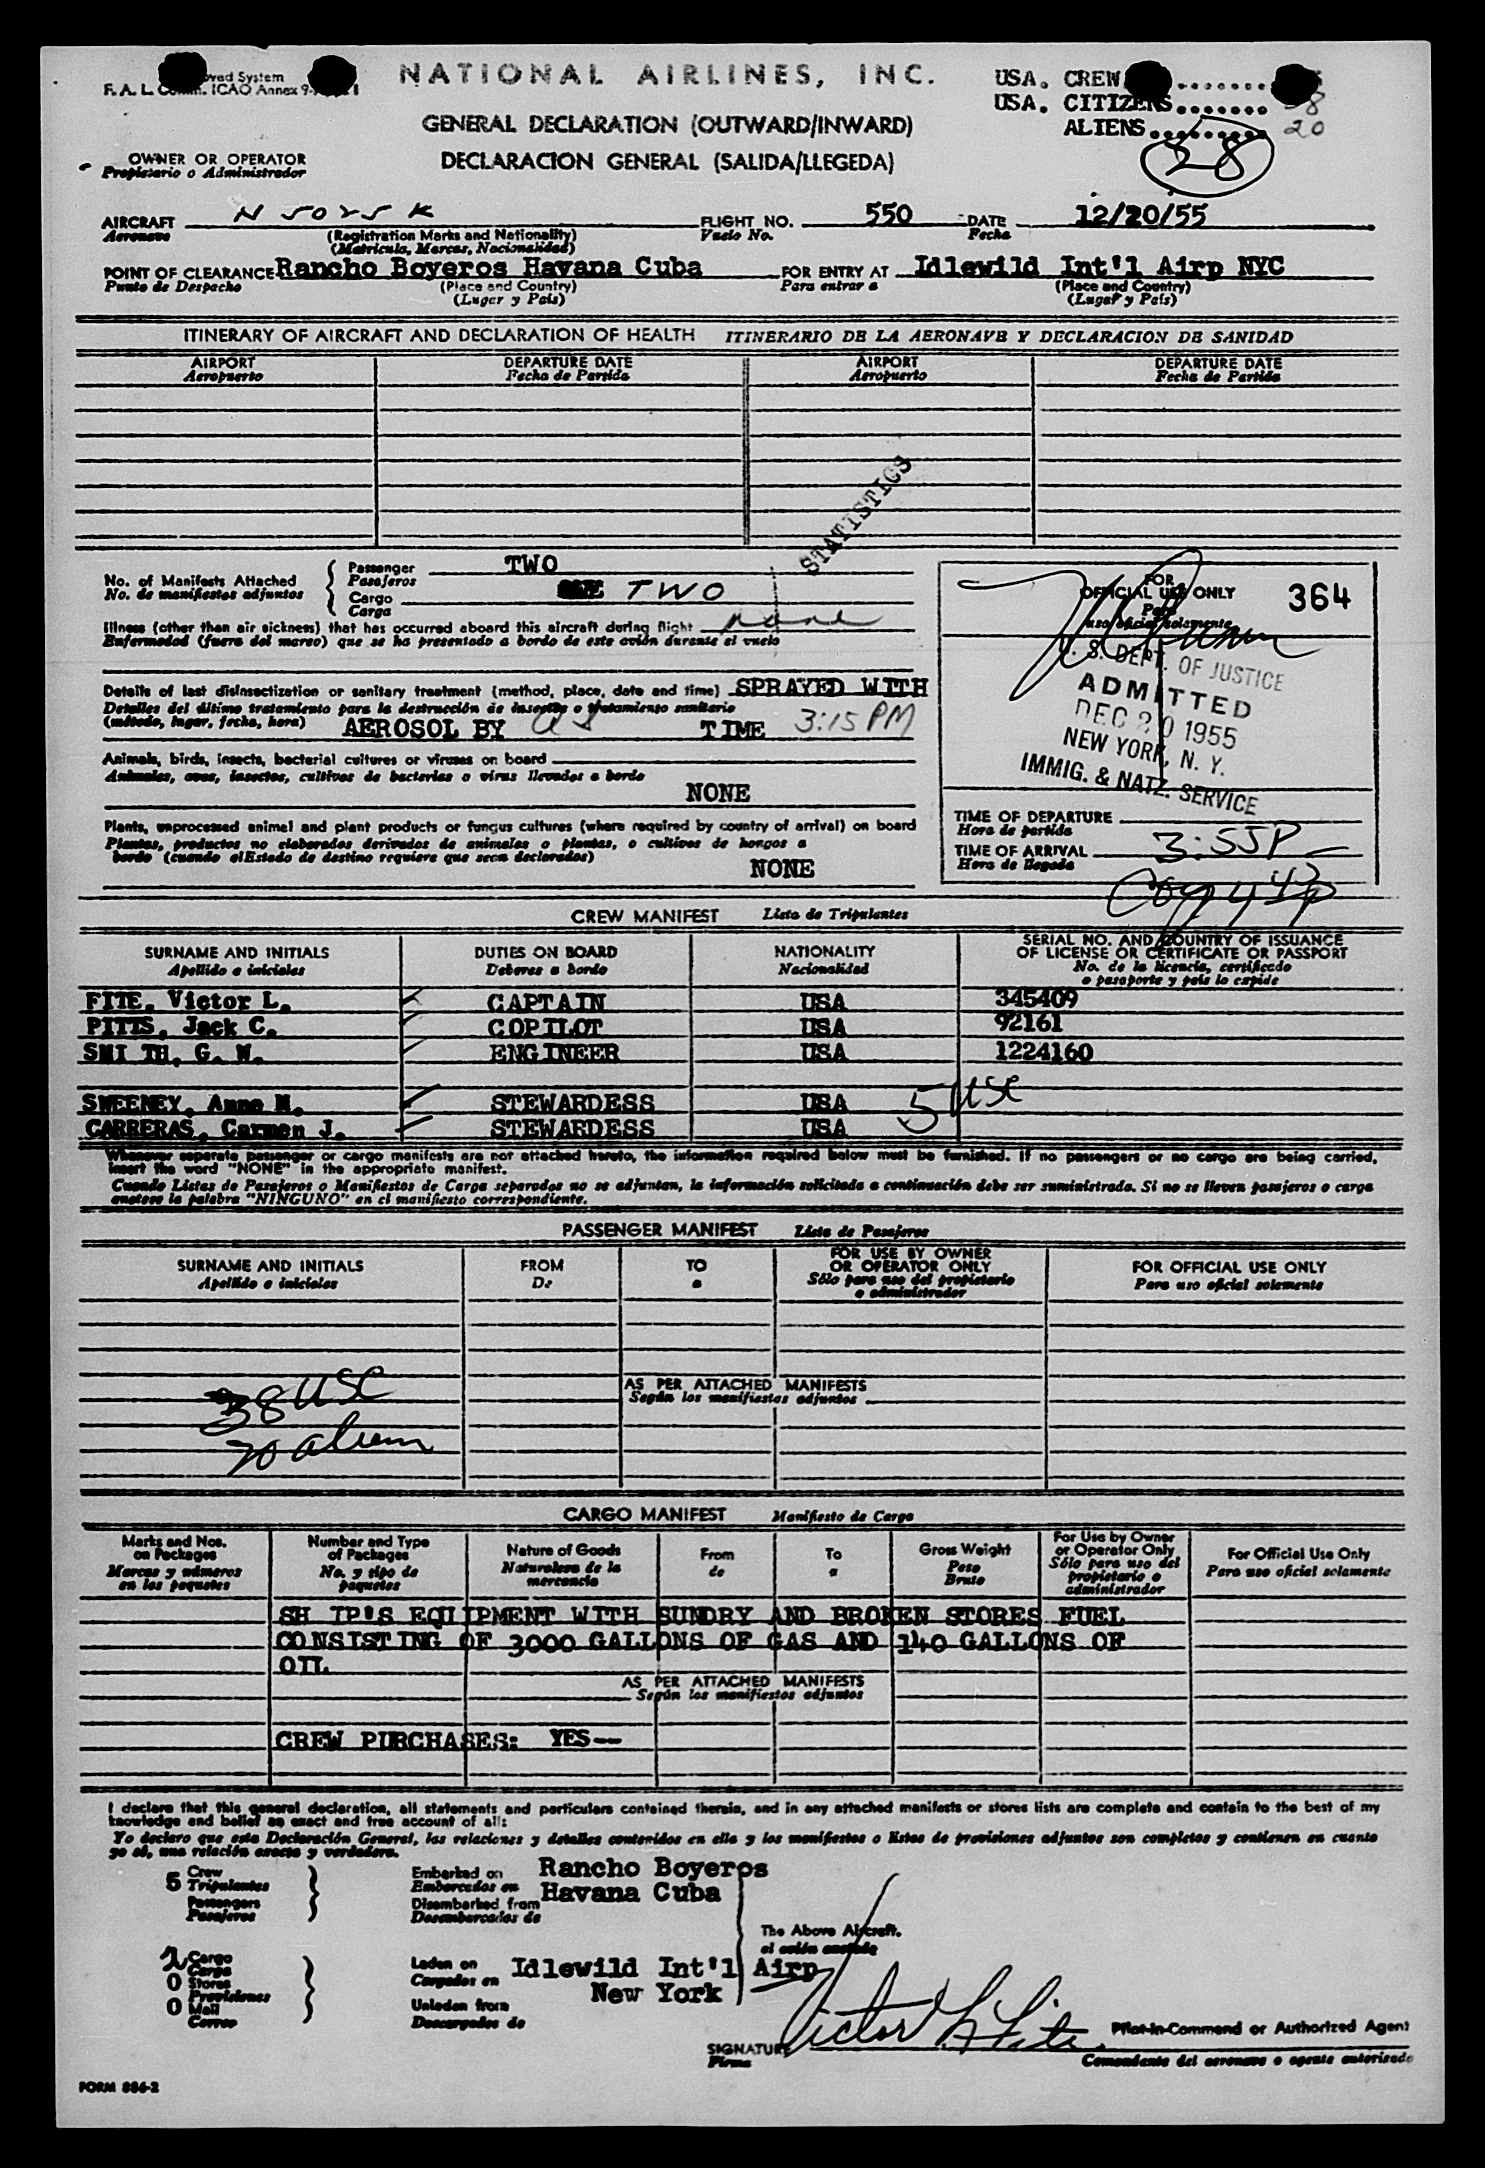 NATIONAL AIRLINES, INC.
F. A. L. ICAO Annex
USA. CREW
USA. CITIZENS....... 38
ALIENS......... 20
58
GENERAL DECLARATION (OUTWARD/INWARD)
DECLARACION GENERAL (SALIDA/LLEGEDA)
OWNER OR OPERATOR
Propietario o Administrador
AIRCRAFT N 5025 K FLIGHT NO. 550 DATE 12/20/55
Aeronave (Registration Marks and Nationality) Vuelo No. Fecha
(Matricula, Marcas, Nacionalidad)
POINT OF CLEARANCE Rancho Boyeros Havana Cuba FOR ENTRY AT Idlewild Int'l Airp NYC
Punto de Despacho (Place and Country) Para entrar a (Place and Country)
(Lugar y País) (Lugar y País)
ITINERARY OF AIRCRAFT AND DECLARATION OF HEALTH ITINERARIO DE LA AERONAVE Y DECLARACION DE SANIDAD
AIRPORT DEPARTURE DATE AIRPORT DEPARTURE DATE
Aeropuerto Fecha de Partida Aeropuerto Fecha de Partida
STATISTICS
No. of Manifests Attached Passenger TWO
No. de manifiestos adjuntos Pasajeros
Cargo TWO
Carga
Illness (other than air sickness) that has occurred aboard this aircraft during flight none
Enfermedad (fuera del mareo) que se ha presentado a bordo de este avión durante el vuelo
Details of last disinsectization or sanitary treatment (method, place, date and time) SPRAYED WITH
Detalles del último tratamiento para la destrucción de insectos o tratamiento sanitario
(método, lugar, fecha, hora) AEROSOL BY TIME 3:15 PM
Animals, birds, insects, bacterial cultures or viruses on board
Animales, aves, insectos, cultivos de bacterias o virus llevados a bordo
NONE
Plants, unprocessed animal and plant products or fungus cultures (where required by country of arrival) on board
Plantas, productos no elaborados derivados de animales o plantas, o cultivos de hongos a
bordo (cuando el Estado de destino requiere que sean declarados)
NONE
FOR
OFFICIAL USE ONLY 364
Para
uso oficial solamente
U. S. DEPT. OF JUSTICE
ADMITTED
DEC 20 1955
NEW YORK, N. Y.
IMMIG. & NATZ. SERVICE
TIME OF DEPARTURE
Hora de partida
TIME OF ARRIVAL 3:55P
Hora de llegada
CREW MANIFEST Lista de Tripulantes
SURNAME AND INITIALS DUTIES ON BOARD NATIONALITY SERIAL NO. AND COUNTRY OF ISSUANCE
OF LICENSE OR CERTIFICATE OR PASSPORT
Apellido e iniciales Deberes a bordo Nacionalidad No. de la licencia, certificado
o pasaporte y país lo expide
FITE, Victor L. CAPTAIN USA 345409
PITTS, Jack C. COPILOT USA 92161
SMITH, G. W. ENGINEER USA 1224160
SWEENEY, Anne M. STEWARDESS USA 5 USC
CARRERAS, Carmen J. STEWARDESS USA
Whenever separate passenger or cargo manifests are not attached hereto, the information required below must be furnished. If no passengers or no cargo are being carried,
insert the word "NONE" in the appropriate manifest.
Cuando Listas de Pasajeros o Manifiestos de Carga separados no se adjuntan, la información solicitada a continuación debe ser suministrada. Si no se lleven pasajeros o carga
anotese la palabra "NINGUNO" en el manifiesto correspondiente.
PASSENGER MANIFEST Lista de Pasajeros
SURNAME AND INITIALS FROM TO FOR USE BY OWNER
OR OPERATOR ONLY FOR OFFICIAL USE ONLY
Apellido e iniciales De a Sólo para uso del propietario
o administrador Para uso oficial solamente
AS PER ATTACHED MANIFESTS
Según los manifiestos adjuntos
38 USC
20 alien
CARGO MANIFEST Manifiesto de Carga
Marks and Nos.
on Packages
Marcas y números
en los paquetes
Number and Type
of Packages
No. y tipo de
paquetes
Nature of Goods
Naturaleza de la
mercancia
From
de
To
a
Gross Weight
Peso
Bruto
For Use by Owner
or Operator Only
Sólo para uso del
propietario o
administrador
For Official Use Only
Para uso oficial solamente
SHIP'S EQUIPMENT WITH SUNDRY AND BROKEN STORES FUEL
CONSISTING OF 3000 GALLONS OF GAS AND 140 GALLONS OF
OIL
AS PER ATTACHED MANIFESTS
Según los manifiestos adjuntos
CREW PURCHASES: YES--
I declare that this general declaration, all statements and particulars contained therein, and in any attached manifests or stores lists are complete and contain to the best of my
knowledge and belief an exact and true account of all:
Yo declaro que esta Declaración General, las relaciones y detalles contenidos en ella y los manifiestos o listas de provisiones adjuntos son completos y contienen en cuanto
yo sé, una relación exacta y verdadera.
5 Crew
Tripulantes
Passengers
Pasajeros
Embarked on Rancho Boyeros
Embarcados en Havana Cuba
Disembarked from
Desembarcados de
The Above Aircraft.
el avión
2 Cargo
Carga
0 Stores
Provisiones
0 Mail
Correo
Laden on Idlewild Int'l Airp
Cargados en New York
Unladen from
Descargados de
SIGNATURE Victor L Fite Pilot-in-Command or Authorized Agent
Firma Comandante del aeronave o agente autorizado
FORM 886-2